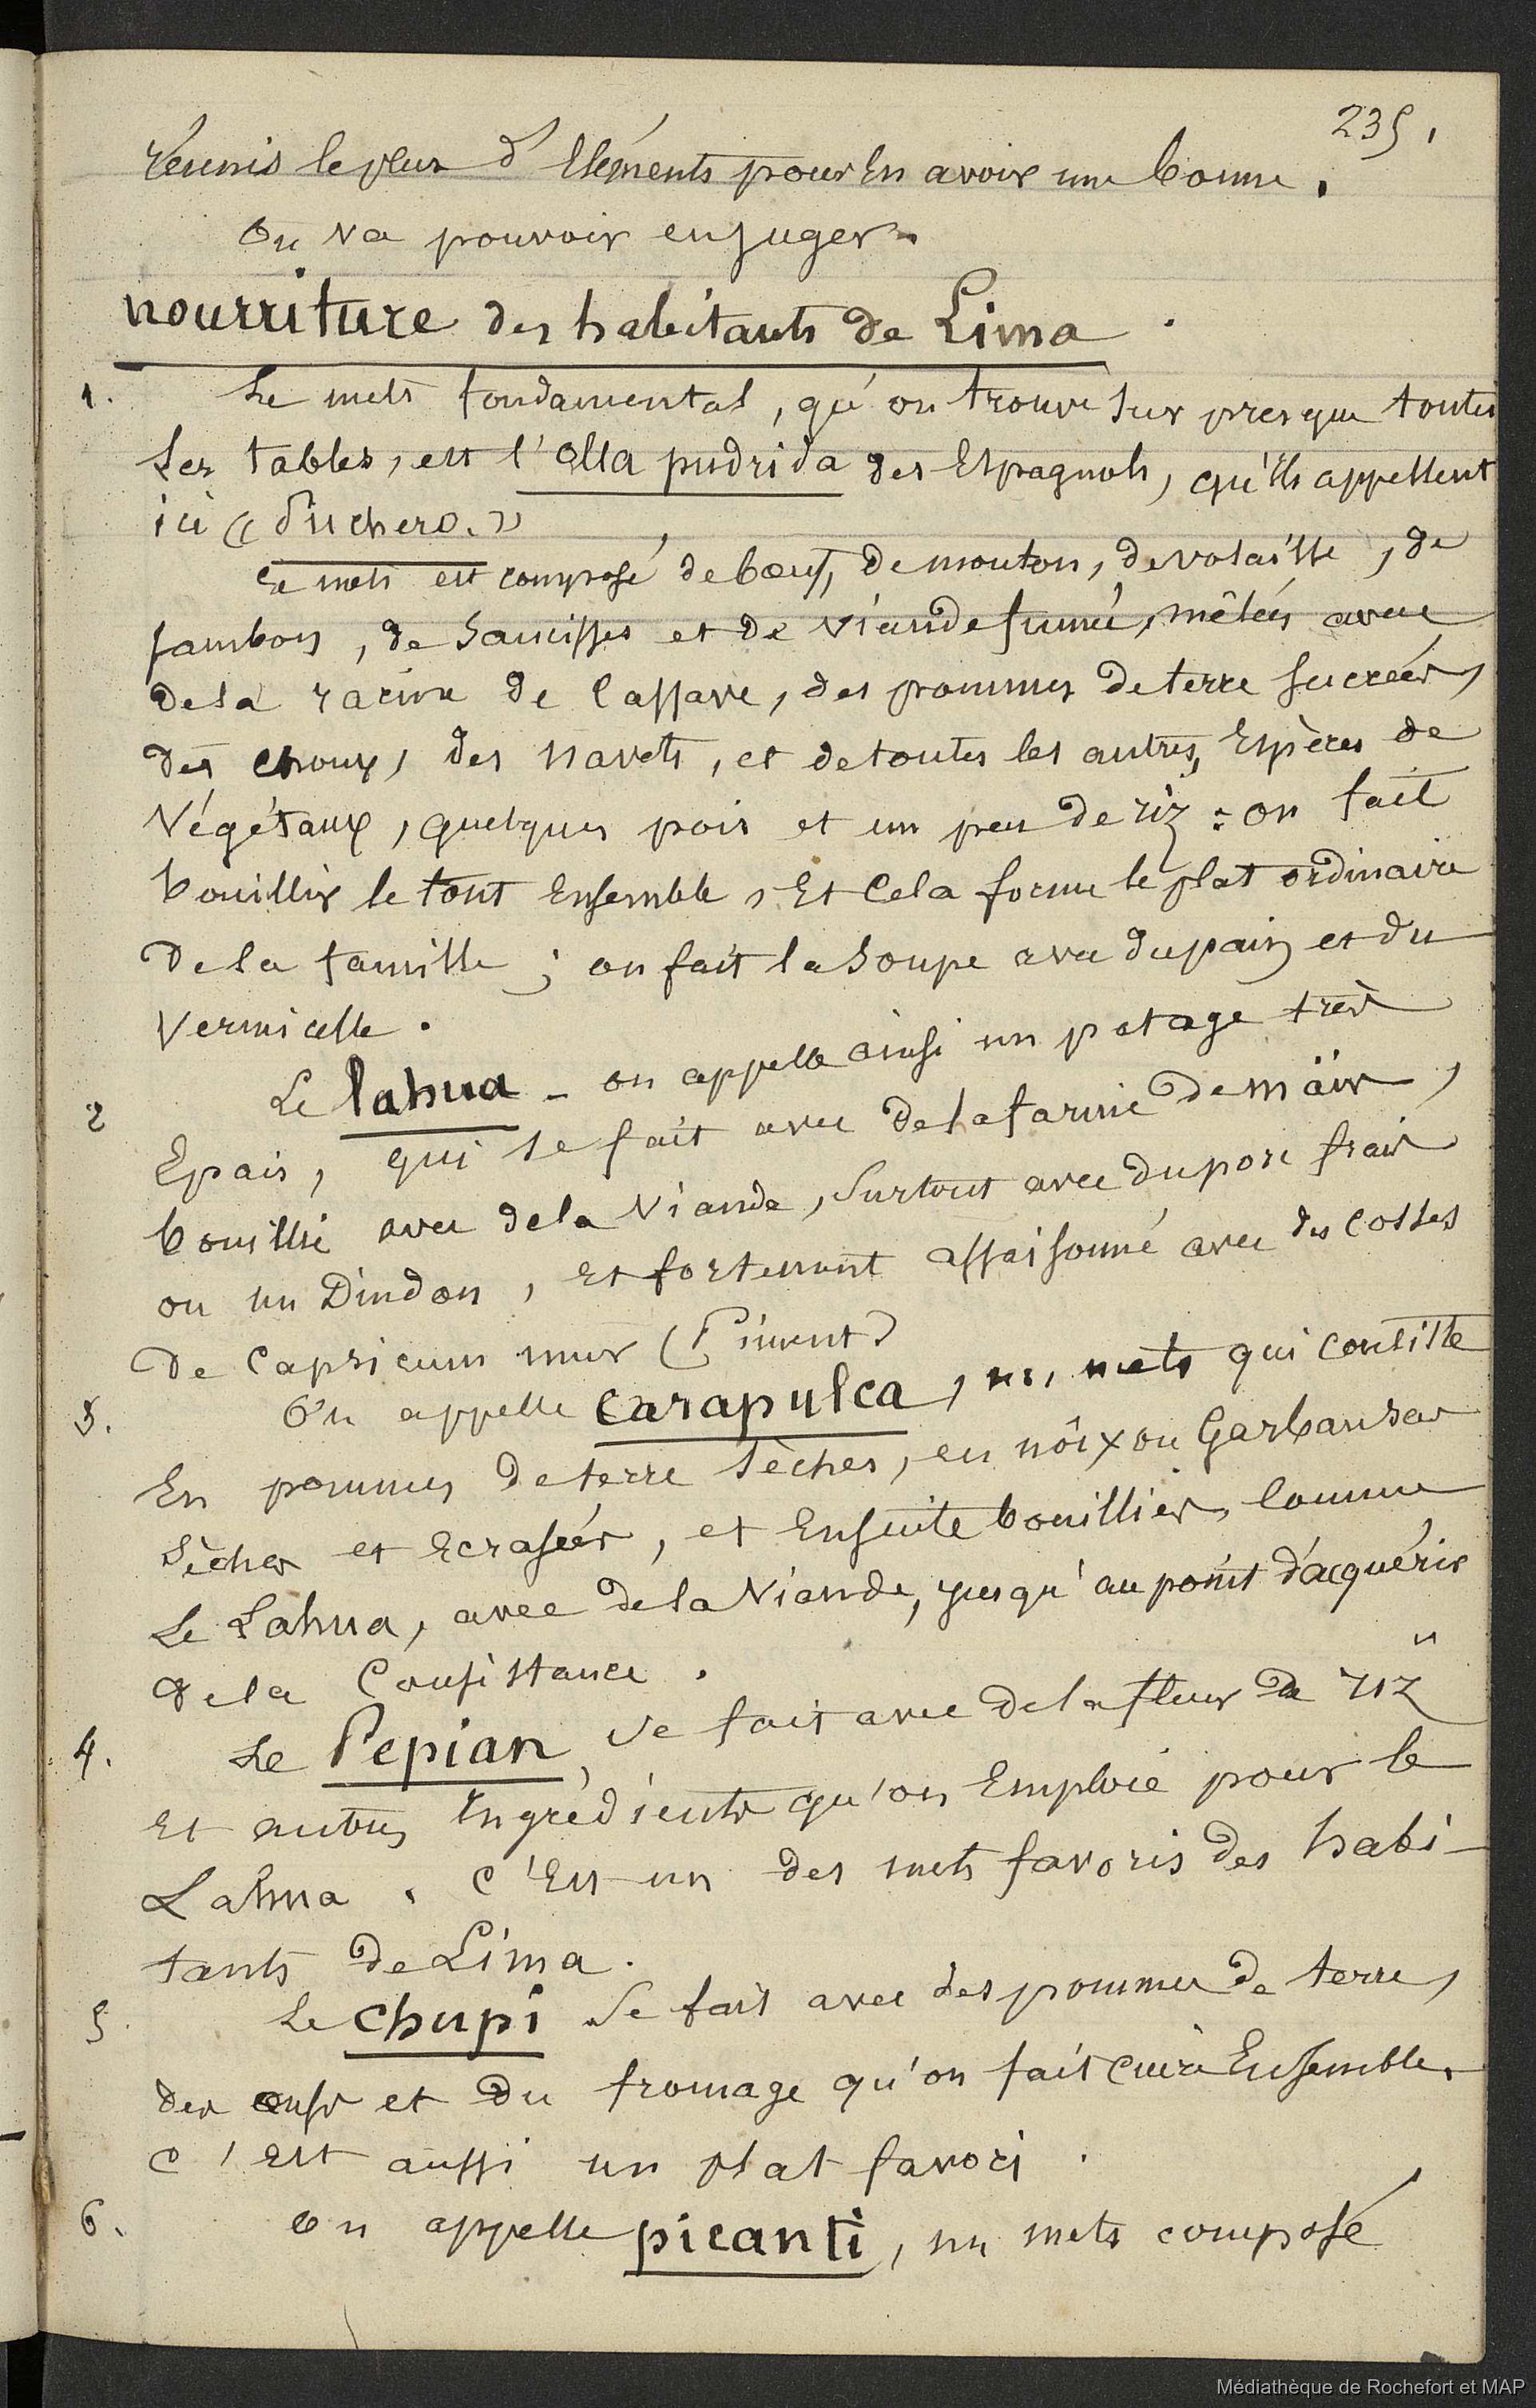 235.
réunis le plus d'Eléments pour En avoir une bonne.
On va pouvoir en juger.
nourriture des habitants de Lima.
1. Le mets fondamental, qu'on trouve sur presque toutes
les tables, est l'Olla pudrida des Espagnols, qu'ils appellent
ici « Puchero. »
Ce mets est composé de bœuf, de mouton, de volaille, de
jambon, de saucisses et de viande fumée, mêlées avec
de la racine de Cassave, des pommes de terre sucrées,
des choux, des navets, et de toutes les autres, Espèces de
végétaux, quelques pois et un peu de riz : on fait
bouillir le tout Ensemble, Et Cela forme le plat ordinaire
de la famille ; on fait la soupe avec du pain et du
vermicelle.
2 Le lahua - on appelle ainsi un potage très
Epais, qui se fait avec de la farine de maïs,
bouillie avec de la viande, surtout avec du porc frais
ou un Dindon, et fortement assaisonné avec des cosses
de Capsicum mur (Piment)
3. On appelle carapulca, un mets qui consiste
En pommes de terre sèches, en nôix ou Garbansas
sèches et Ecrasées, et Ensuite bouillies, Comme
le Lahua, avec de la viande, jusqu'au point d'acquérir
de la Consistance.
4. Le Pepian, se fait avec de la fleur de riz
Et autres Ingrédients qu'on Emploie pour le
Lahua. C'Est un des mets favoris des habi-
tants de Lima.
5 Le chupi se fait avec des pommes de terre,
des œufs et du fromage qu'on fait cuire Ensemble.
C'est aussi un plat favori.
6. On appelle picanti, un mets composé
Médiathèque de Rochefort et MAP